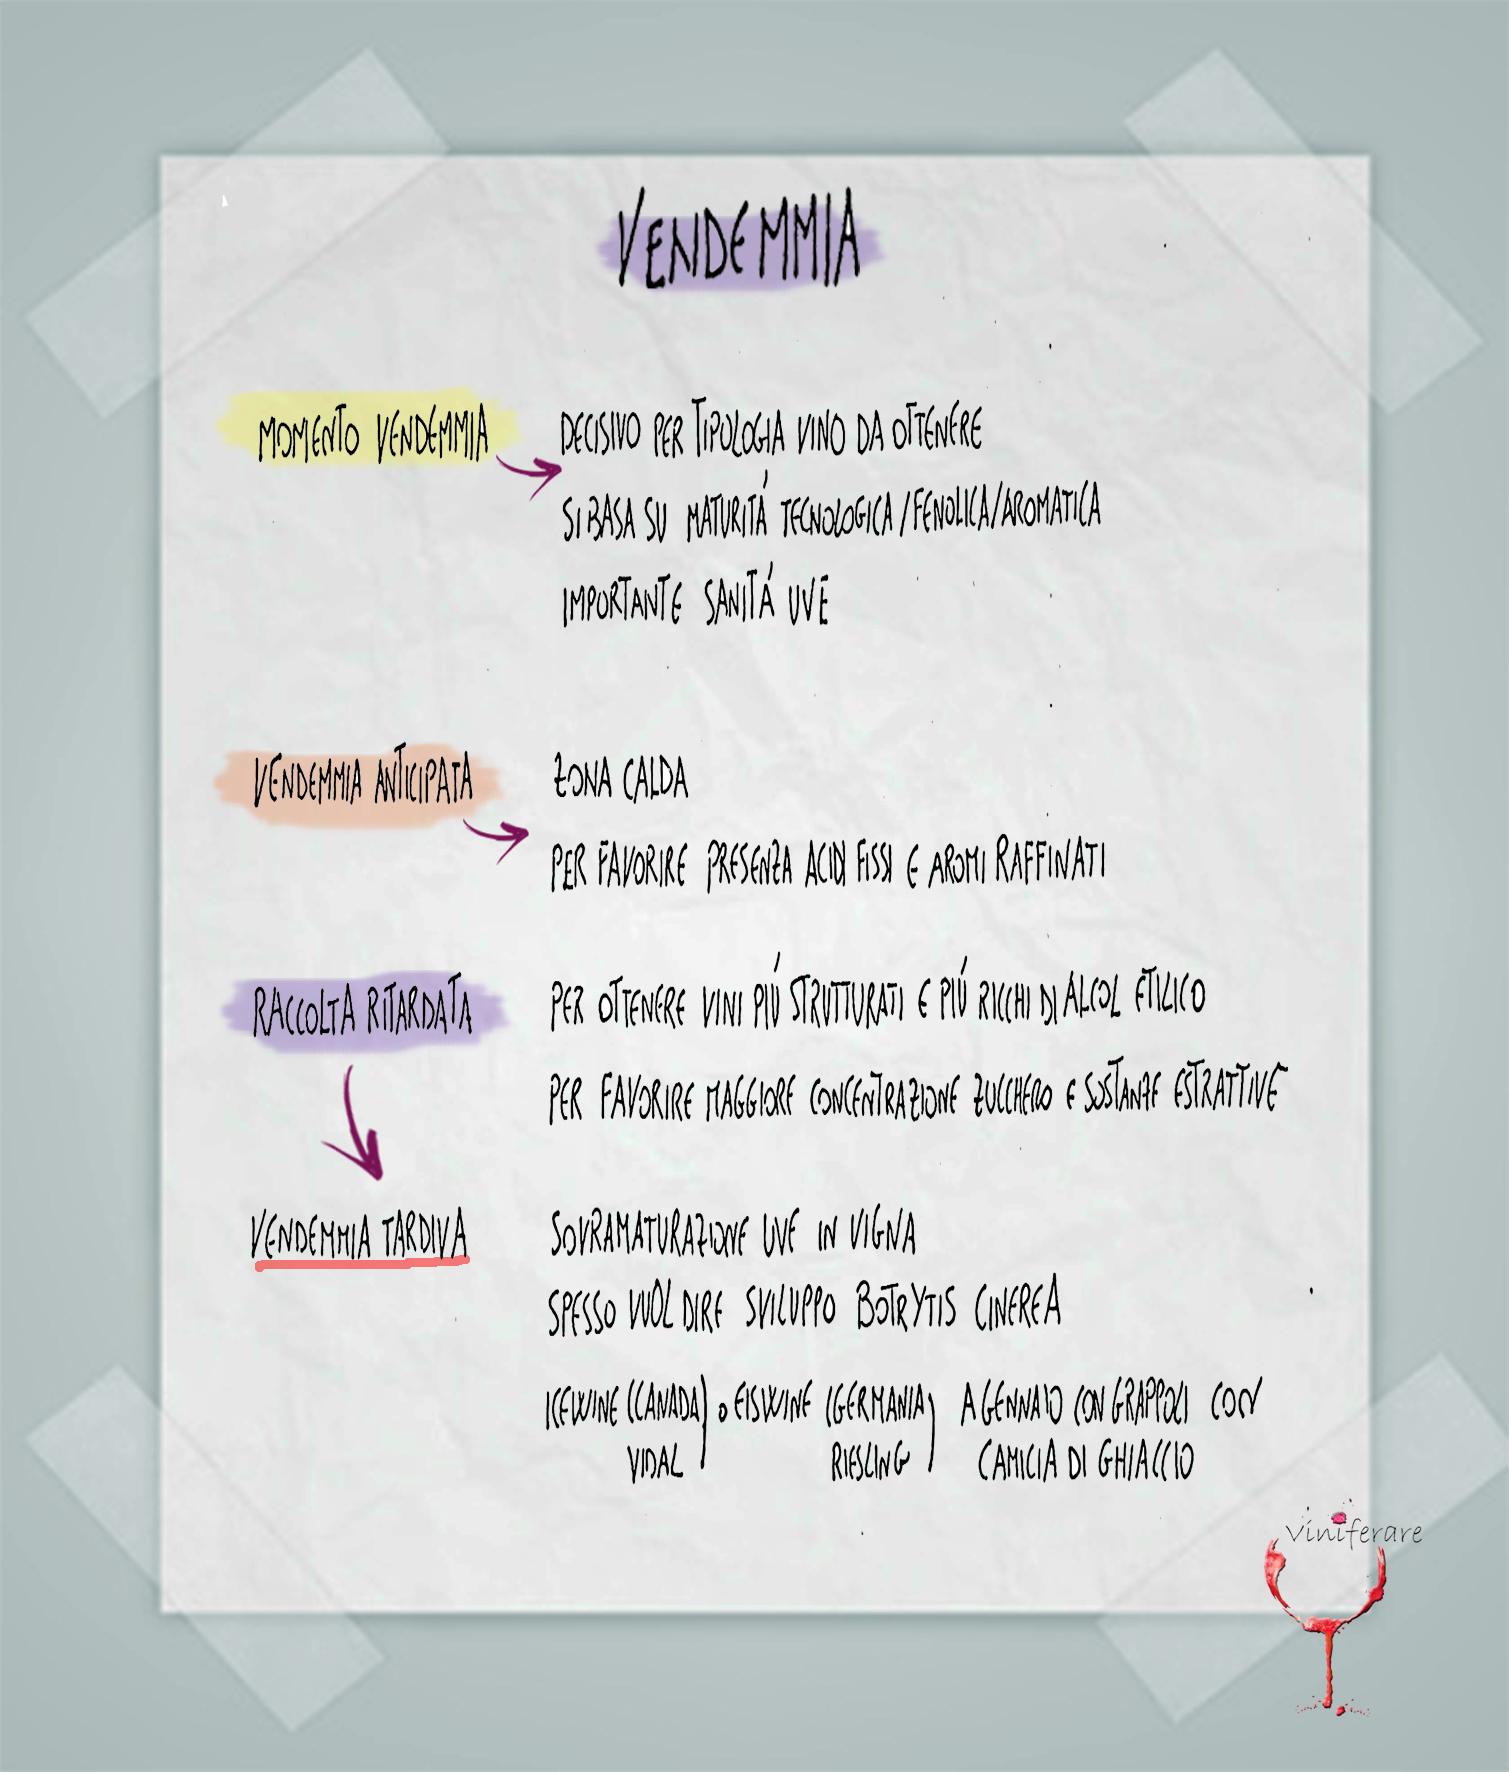 VENDEMMIA
MOMENTO VENDEMMIA
DECISIVO PER TIPOLOGIA VINO DA OTTENERE
SI BASA SU MATURITÁ TECNOLOGICA/FENOLICA/AROMATICA
IMPORTANTE SANITÁ UVE
VENDEMMIA ANTICIPATA
ZONA CALDA
PER FAVORIRE PRESENZA ACIDI FISSI E AROMI RAFFINATI
RACCOLTA RITARDATA
PER OTTENERE VINI PIÚ STRUTTURATI E PIÚ RICCHI DI ALCOL ETILICO
PER FAVORIRE MAGGIORE CONCENTRAZIONE ZUCCHERO E SOSTANZE ESTRATTIVE
VENDEMMIA TARDIVA
SOVRAMATURAZIONE UVE IN VIGNA
SPESSO VUOL DIRE SVILUPPO BOTRYTIS CINEREA
ICEWINE (CANADA) O EISWINE (GERMANIA) A GENNAIO CON GRAPPOLI CON
VIDAL RIESLING CAMICIA DI GHIACCIO
viniferare